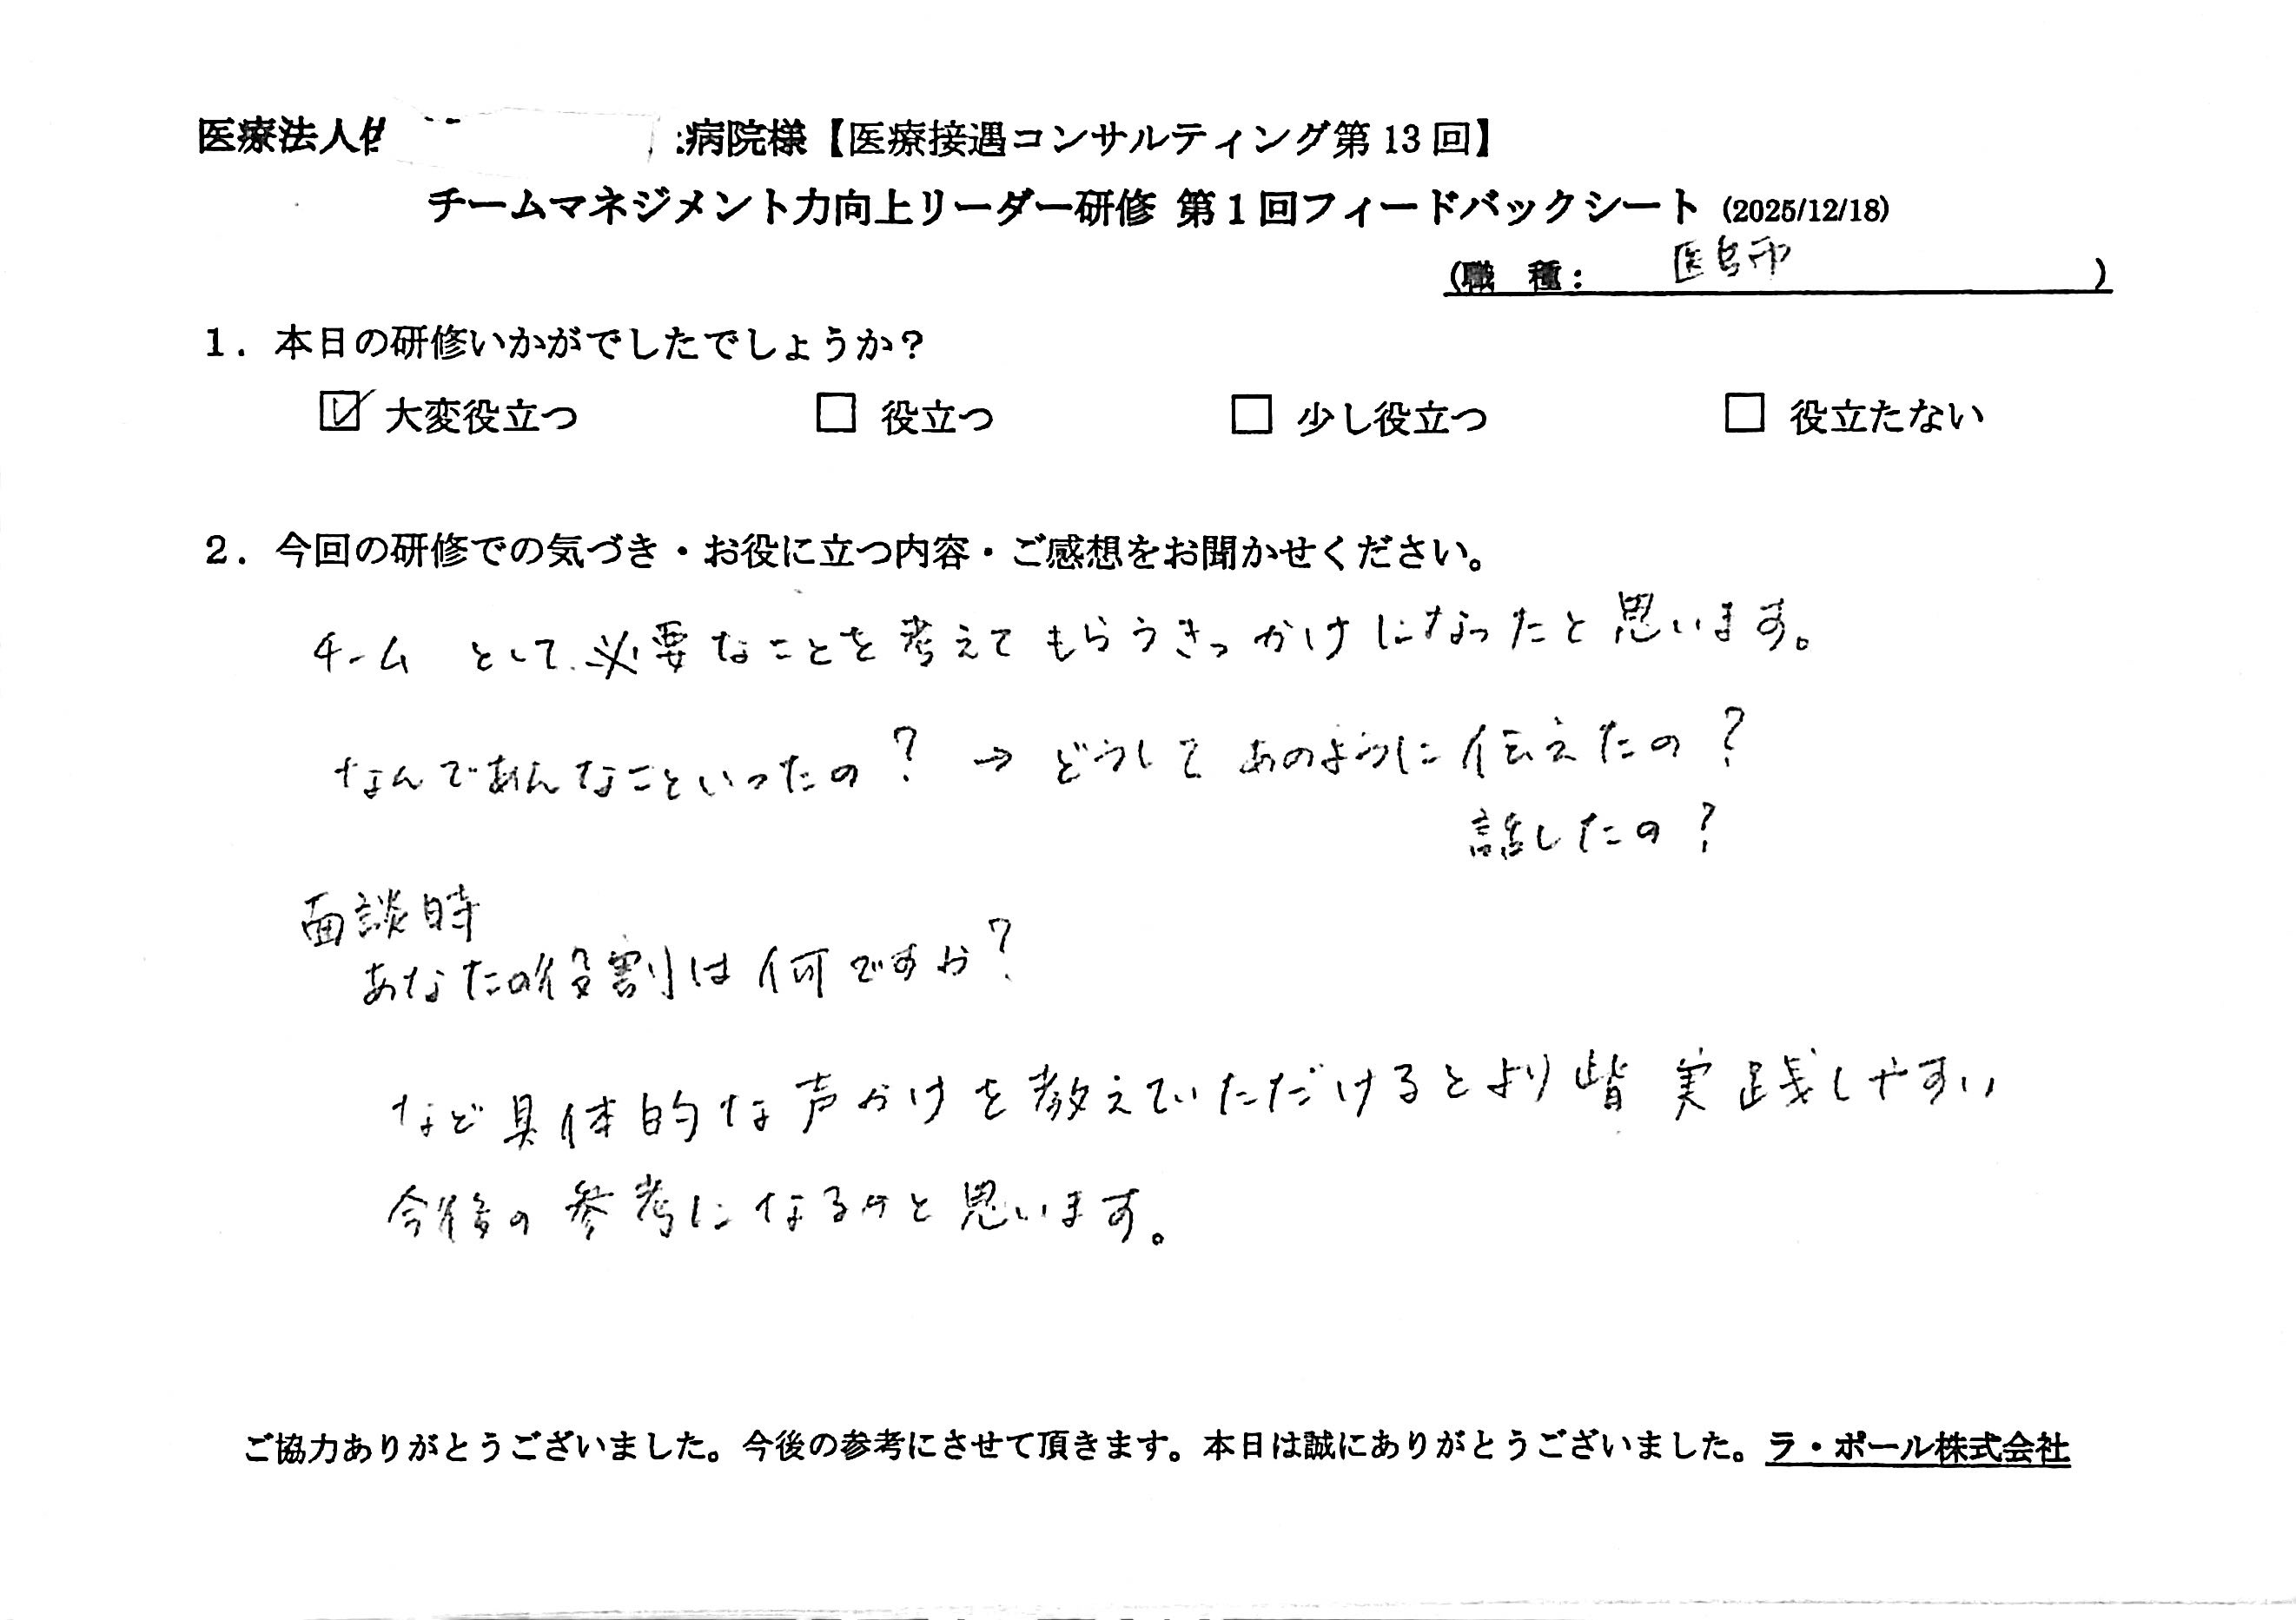 医療法人 病院様【医療接遇コンサルティング第13回】
チームマネジメント力向上リーダー研修 第1回フィードバックシート (2025/12/18)
(職 種: 医師 )
1. 本日の研修いかがでしたでしょうか?
☑ 大変役立つ □ 役立つ □ 少し役立つ □ 役立たない
2. 今回の研修での気づき・お役に立つ内容・ご感想をお聞かせください。
チームとして必要なことを考えてもらうきっかけになったと思います。
なんであんなこといったの? → どうしてあのように伝えたの?
話したの?
面談時
あなたの役割は何ですか?
など具体的な声かけを教えていただけるとより皆実践しやすい
今後の参考になるかと思います。
ご協力ありがとうございました。今後の参考にさせて頂きます。本日は誠にありがとうございました。ラ・ポール株式会社